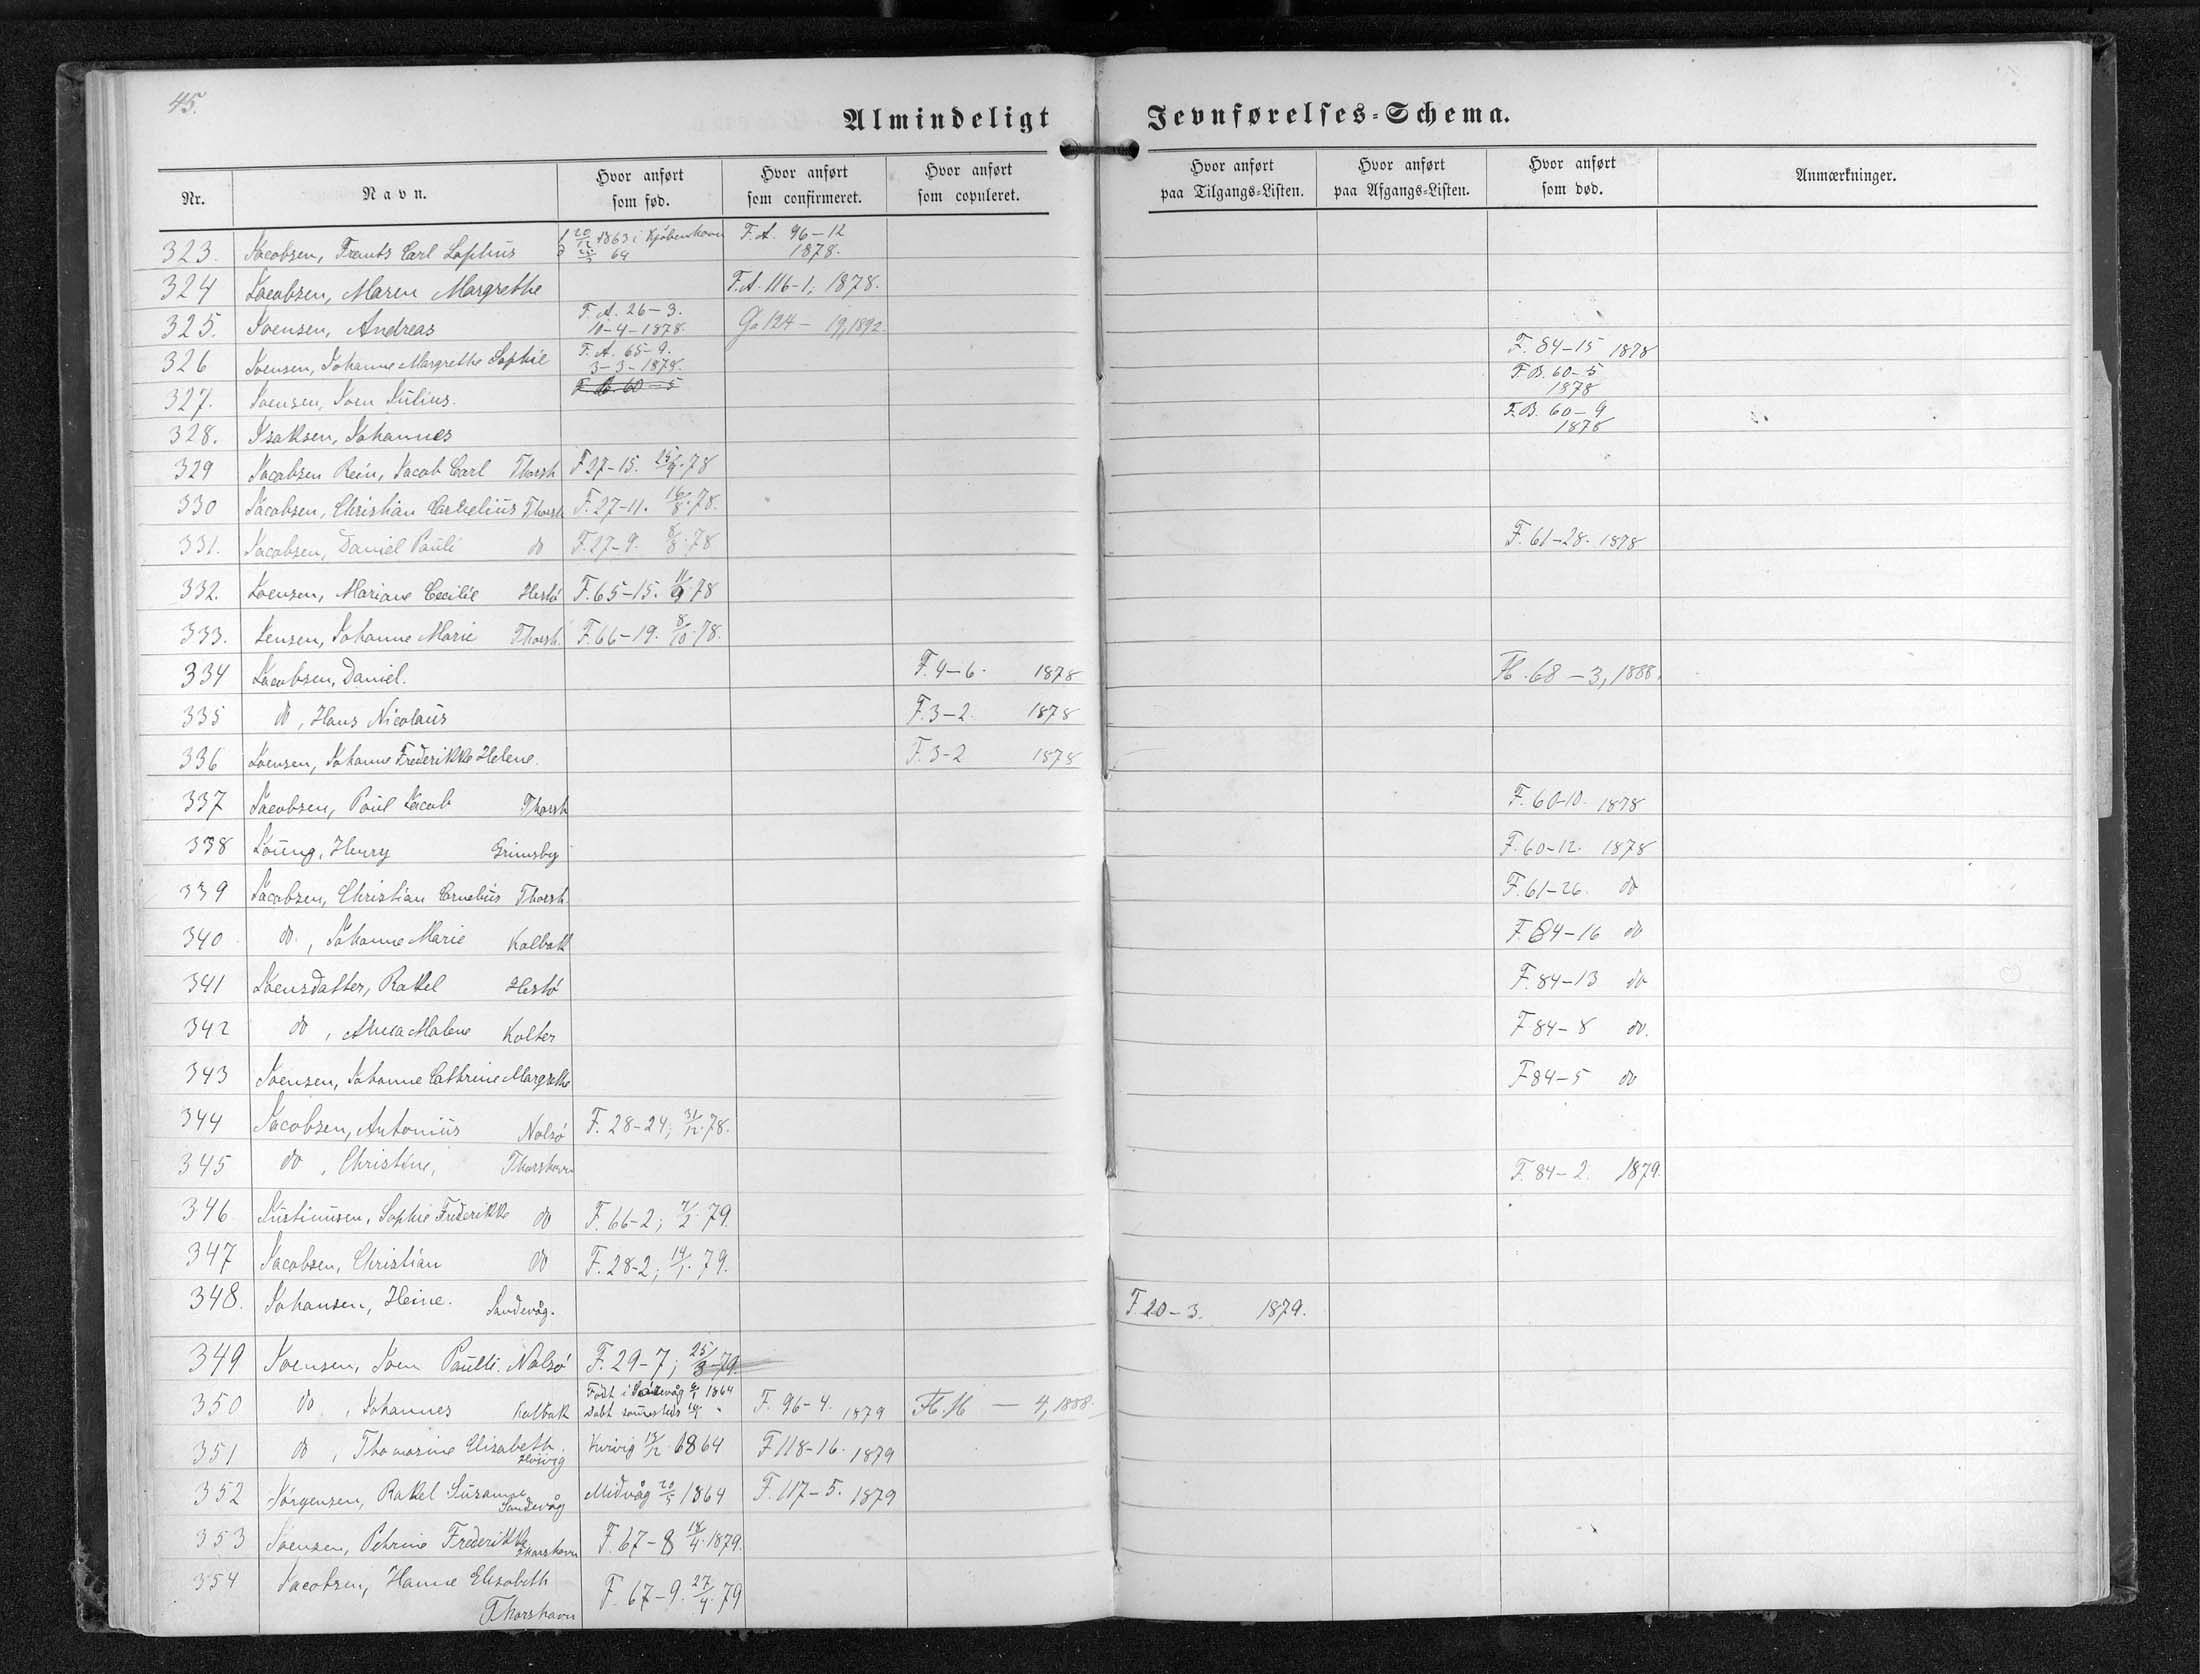 45.
Almindeligt Jevnførelses-Schema.
Nr. Navn. Hvor anført som fød. Hvor anført som confirmeret. Hvor anført som copuleret. Hvor anført paa Tilgangs-Listen. Hvor anført paa Afgangs-Listen. Hvor anført som død. Anmærkninger.
323. Jacobsen, Frants Carl Sophus f 20/12 1863 i Kjöbenhavn F.A. 96-12
64 1878.
324 Jacobsen, Maren Margrethe F.A. 116-1, 1878.
325. Joensen, Andreas F.A. 26-3. Ga 124 - 19, 1892.
10-4-1878.
326 Joensen, Johanne Margrethe Sophie F.A. 65-9. F. 84-15 1878
3-3-1878.
327. Joensen, Joen Julius. F.B. 60-5 F.B. 60-5
1878
328. Isaksen, Johannes F.B. 60-9
1878
329 Jacobsen Rein, Jacob Carl Thorsh F 27-15. 25/9 78
330 Jacobsen, Christian Cornelius Thorsh F. 27-11. 16/8 78.
331. Jacobsen, Daniel Pauli do F. 27-9. 8/8 78 F. 61-28. 1878
332. Joensen, Mariane Cecilie Hestö F. 65-15. 11/9 78
333. Jensen, Johanne Marie Thorsh. F. 66-19. 8/10 78.
334 Jacobsen, Daniel. F. 4-6. 1878 H. 68-3, 1888.
335 do, Hans Nicolaus F. 3-2. 1878
336 Joensen, Johanne Frederikke Helene. F. 3-2 1878
337 Jacobsen, Poul Jacob Thorsh F. 60-10. 1878
338 Joung, Henry Grimsby F. 60-12. 1878
339 Jacobsen, Christian Cornelius Thorsh. F. 61-26. do
340 do., Johanne Marie Kalbak F. 84-16 do
341 Joensdatter, Rakel Hestö F. 84-13 do
342 do, Anna Malene Kolter F 84-8 do.
343 Joensen, Johanne Cathrine Margrethe F 84-5 do
344 Jacobsen, Antonius Nolsö F. 28-24; 31/12 78.
345 do, Christine, Thorshavn F. 84-2. 1879.
346. Justinusen, Sophie Frederikke do F. 66-2; 7/2 79.
347 Jacobsen, Christian do F. 28-2; 14/1 79.
348. Johansen, Heine. Sandevåg. F. 20-3. 1879.
349 Joensen, Joen Paulli. Nolsö F. 29-7; 25/3 79.
350 do, Johannes Kalbak Födt i 1864 F. 96-4. 1879 H. 16 - 4, 1888.
Döbt sammesteds
351 do, Thomasine Elisabeth. Kvivig 13/12 1864 F 118-16. 1879
352 Jörgensen, Rakel Susanne Sandevåg Midvåg 20/5 1864 F. 117-5. 1879
353 Joensen, Petrine Frederikke Thorshavn F. 67-8 18/4 1879.
354 Jacobsen, Hanne Elisabeth F. 67-9. 27/4 79
Thorshavn